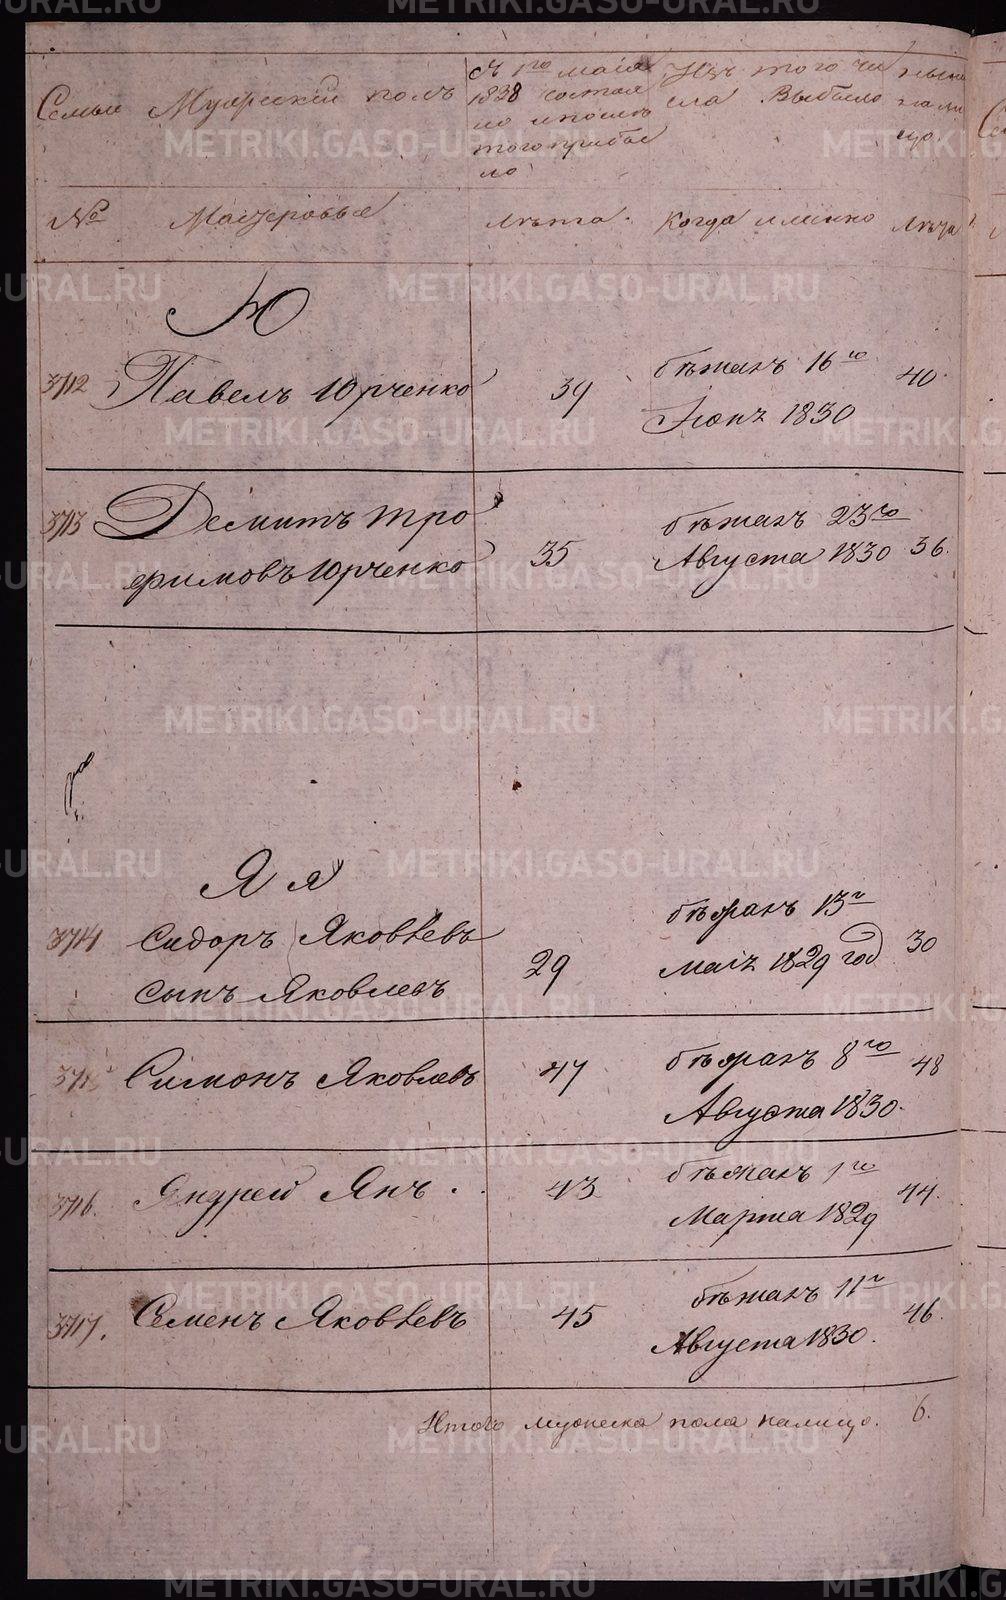 Семьи Мужеский полъ
Съ 1го маія
1828 состоя
ло и после
того прибы
ло
Изъ того чи
сла Выбыло
ныне
нали
цо
№ Мастеровые лѣта. Когда именно лѣта
Ю
3712 Павелъ Юрченко 39 бѣжалъ 16го 40.
Іюнѣ 1830
3713 Демитъ Тро
фимовъ Юрченко 35 бѣжалъ 23го
Августа 1830 36.
Я я
3714 Сидоръ Яковлевъ
сынъ Яковлевъ 29 бѣжалъ 13г
маія 1829 год 30
3715 Симонъ Яковлевъ 47 бѣжалъ 8го 48
Августа 1830.
3716. Андрей Янъ. 43 бѣжалъ 1го
Марта 1829 44.
3717. Семенъ Яковлевъ 45 бѣжалъ 11г 46.
Августа 1830.
Итого мужеска пола налицо. 6.
METRIKI.GASO-URAL.RU